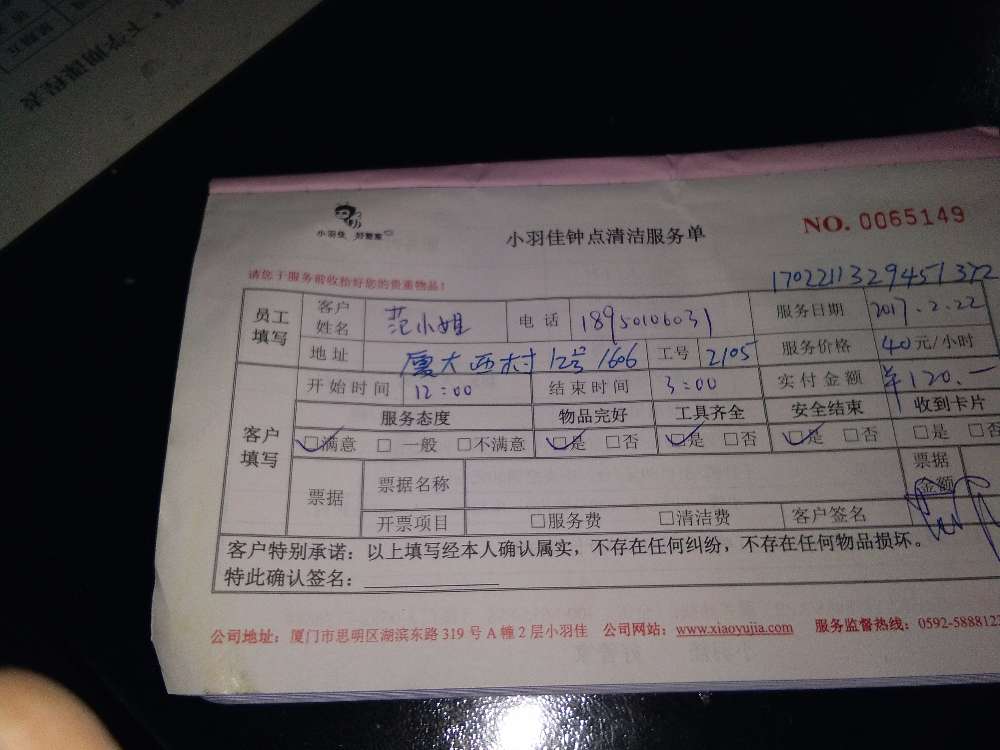 下学期课程表
小羽佳 好管家
小羽佳钟点清洁服务单
NO. 0065149
请您于服务前收拾好您的贵重物品！
1702211329451372
员工填写 客户姓名 范小姐 电话 18950106031 服务日期 2017.2.22
地址 厦大西村 12号 1606 工号 2105 服务价格 40元/小时
客户填写 开始时间 12:00 结束时间 3:00 实付金额 ¥120.—
服务态度 物品完好 工具齐全 安全结束 收到卡片
☑满意 □一般 □不满意 ☑是 □否 ☑是 □否 ☑是 □否 □是 □否
票据 票据名称 票据金额
开票项目 □服务费 □清洁费 客户签名
客户特别承诺：以上填写经本人确认属实，不存在任何纠纷，不存在任何物品损坏。
特此确认签名：
公司地址：厦门市思明区湖滨东路 319 号 A 幢 2 层小羽佳 公司网站：www.xiaoyujia.com 服务监督热线：0592-5888123